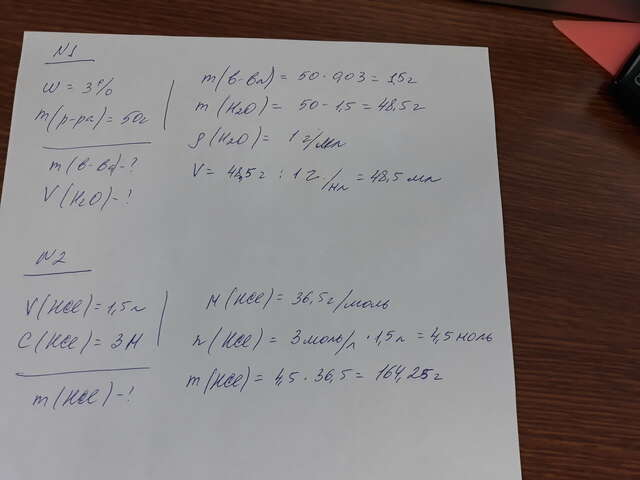 N1
ω = 3%
m(р-ра) = 50г
m(в-ва)-?
V(H2O)-?
m(в-ва) = 50 · 0,03 = 1,5г
m(H2O) = 50 - 1,5 = 48,5г
ρ(H2O) = 1 г/мл
V = 48,5г : 1 г/мл = 48,5 мл
N2
V(HCl) = 1,5л
C(HCl) = 3М
m(HCl)-?
M(HCl) = 36,5г/моль
n(HCl) = 3моль/л · 1,5л = 4,5 моль
m(HCl) = 4,5 · 36,5 = 164,25г